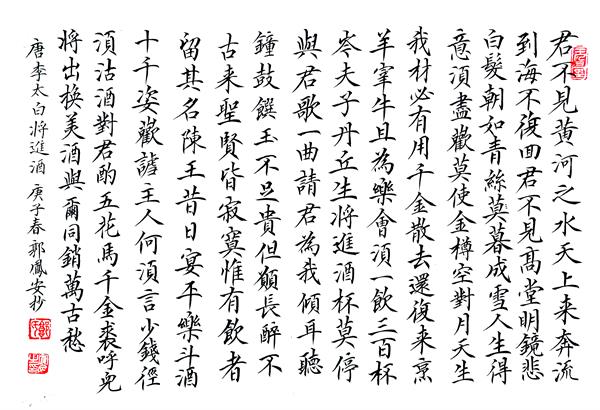 君不見黃河之水天上来奔流
到海不復回君不見高堂明鏡悲
白髮朝如青絲莫暮成雪人生得
意須盡歡莫使金樽空對月天生
我材必有用千金散去還復来烹
羊宰牛且為樂會須一飲三百杯
岑夫子丹丘生将進酒杯莫停
與君歌一曲請君為我傾耳聽
鐘鼓饌玉不足貴但願長醉不
古来聖賢皆寂寞惟有飲者
留其名陳王昔日宴平樂斗酒
十千姿歡謔主人何須言少錢徑
須沽酒對君酌五花馬千金裘呼兒
将出换美酒與爾同銷萬古愁
唐李太白将進酒 庚子春 郭鳳安抄